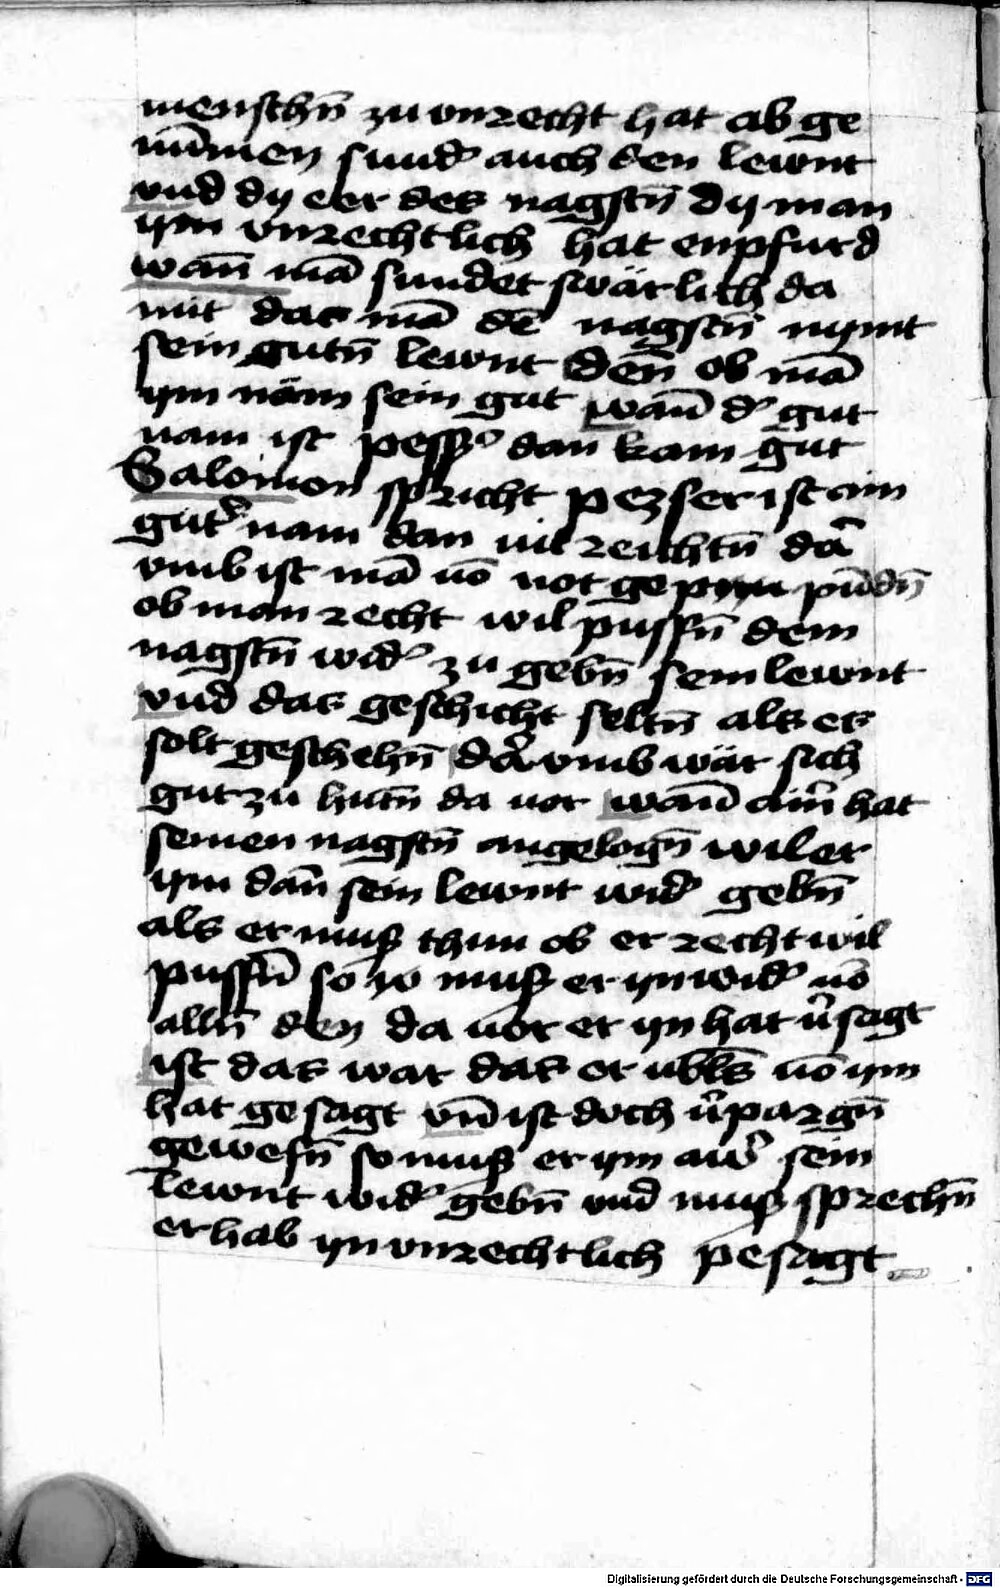 menschn̄ zu vnrecht hat ab ge
nūmen sund̾ auch den lewnt
vnd dy eer des nagstn̄ Dy man
ym vnrechtlich hat enpfurd
wān mā sundet swärlich da
mit das mā dē nagstn̄ nymt
sein gutn̄ lewnt Den̄ ob mā
ym näm sein gut wān d̾ gut
nam ist pess̾ dan kain gut
Salomon spricht pezser ist ain
gut̾ nam dan vil reichtn̄ dar̄
vmb ist mā vō not ge pūdn̄
ob man recht wil pussn̄ dem
nagstn̄ wid̾ zu gebn̄ sein lewnt
vnd das geschicht seltn̄ als es
solt geschehn̄ dar̄vmb wär sich
gut zu hutn̄ da vor wān ain̄ hat
seinen nagstn̄ angelogn̄ wil er
ym dān sein lewnt wid̾ gebn̄
als er muß thun ob er recht wil
pussn̄ so zo muß er yn wid̾ vō
alln̄ den da vor er yn hat v̄sagt
ist das war das er vbls̄ vō ym
hat gesagt vn̄ ist doch v̄pargn̄
gewesn̄ so muß er ym aw̾ sein
lewnt wid̾ gebn̄ vnd muß sprechn̄
er hab yn vnrechtlich pesagt
Digitalisierung gefördert durch die Deutsche Forschungsgemeinschaft - DFG